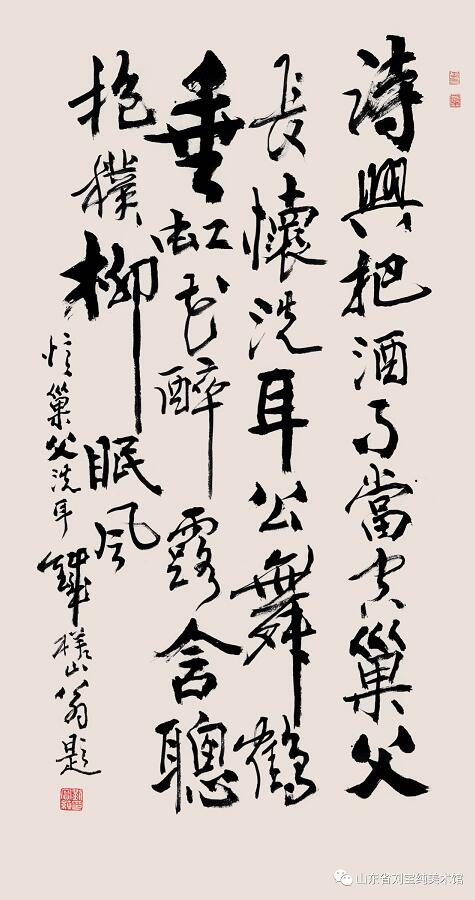 詩興把酒可當空巢父
長懷洗耳公舞鶴
垂虹花醉露含聰
抱樸柳眠風
憶巢父洗耳 鐵槎山翁題
山东省刘宝纯美术馆